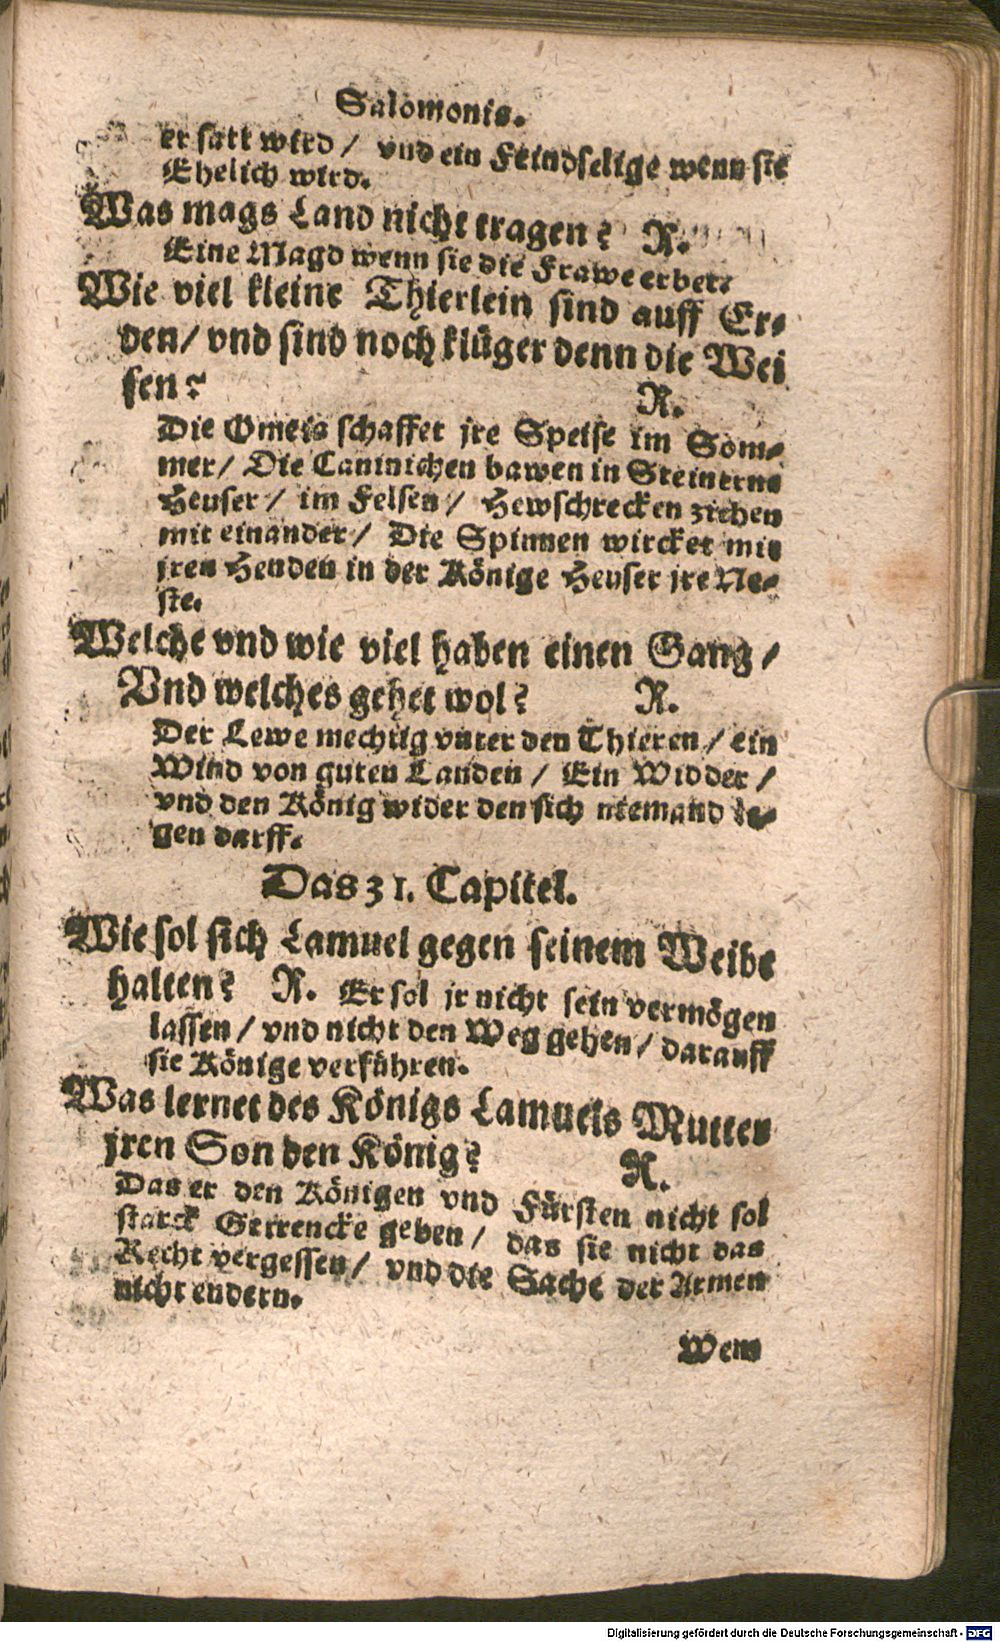 Salomonis.
er satt wird / vnd ein Feindselige wenn sie
Ehelich wird.
Was mags Land nicht tragen? R.
Eine Magd wenn sie die Frawe erbet.
Wie viel kleine Thierlein sind auff Er-
den/ vnd sind noch klüger denn die Wei
sen? R.
Die Omeis schaffet jre Speise im Som-
mer/ Die Caninichen bawen in Steinerne
Heuser / im Felsen / Hewschrecken ziehen
mit einander / Die Spinnen wircket mit
jren Henden in der Könige Heuser jre Ne-
ste.
Welche vnd wie viel haben einen Gang /
Vnd welches gehet wol? R.
Der Lewe mechtig vnter den Thieren / ein
Wind von guten Landen / Ein Widder /
vnd den König wider den sich niemand le-
gen darff.
Das 31. Capitel.
Wie sol sich Lamuel gegen seinem Weibe
halten? R. Er sol jr nicht sein vermögen
lassen / vnd nicht den Weg gehen / darauff
sie Könige verführen.
Was lernet des Königs Lamuels Mutter
jren Son den König? R.
Das er den Königen vnd Fürsten nicht sol
starck Getrencke geben / das sie nicht das
Recht vergessen / vnd die Sache der Armen
nicht endern.
Wem
Digitalisierung gefördert durch die Deutsche Forschungsgemeinschaft - DFG